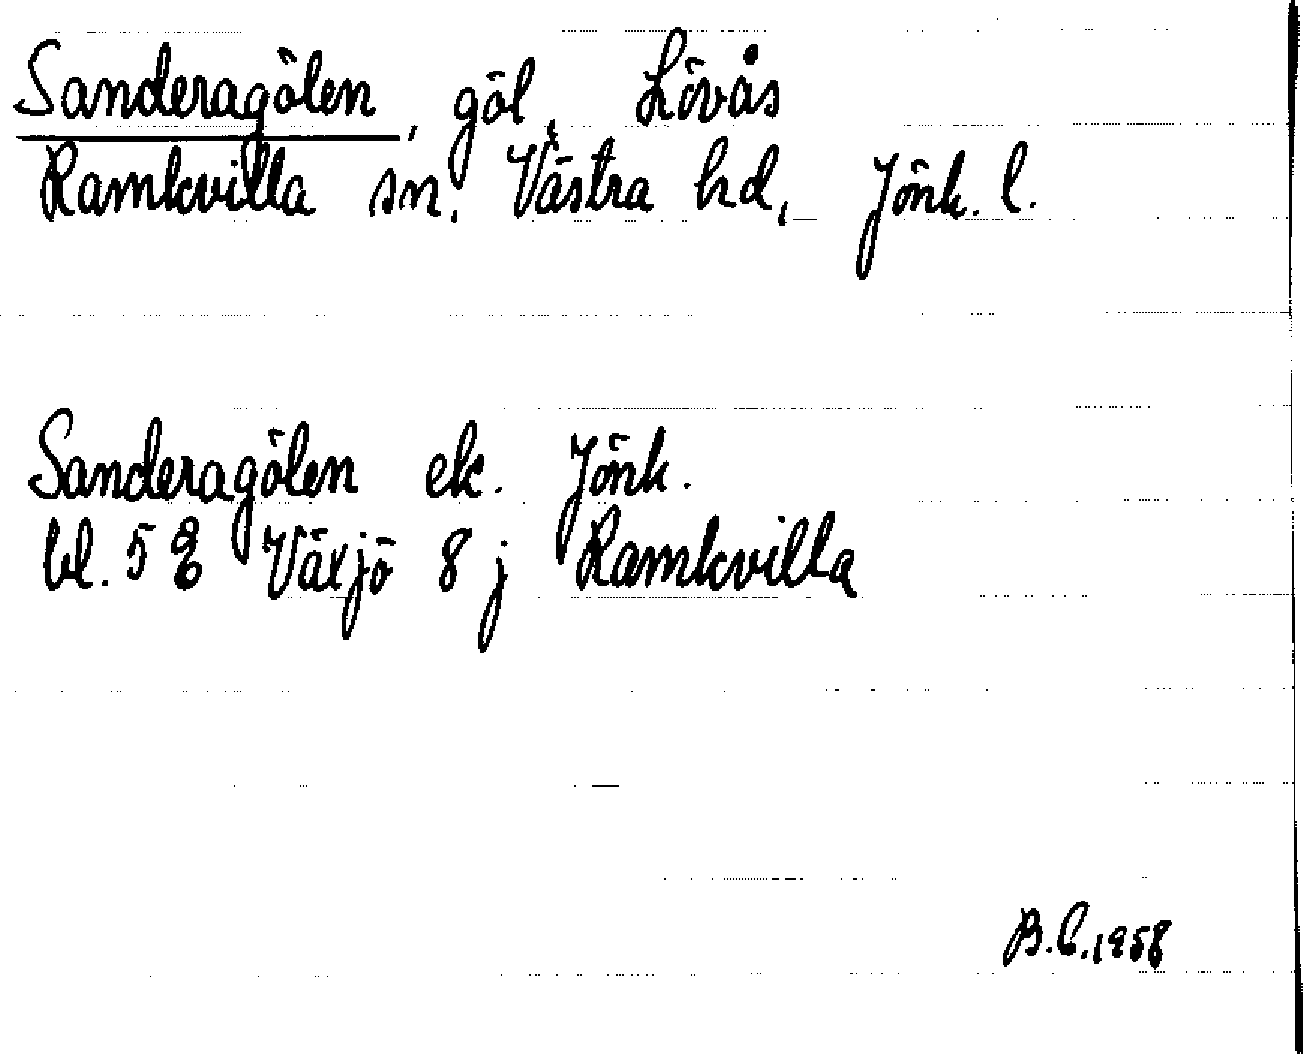 Sanderagölen, göl, Lövås
Ramkvilla sn. Västra hd, Jönk. l.
Sanderagölen ek. Jönk.
bl. 58 Växjö 8 j Ramkvilla
B.C. 1958